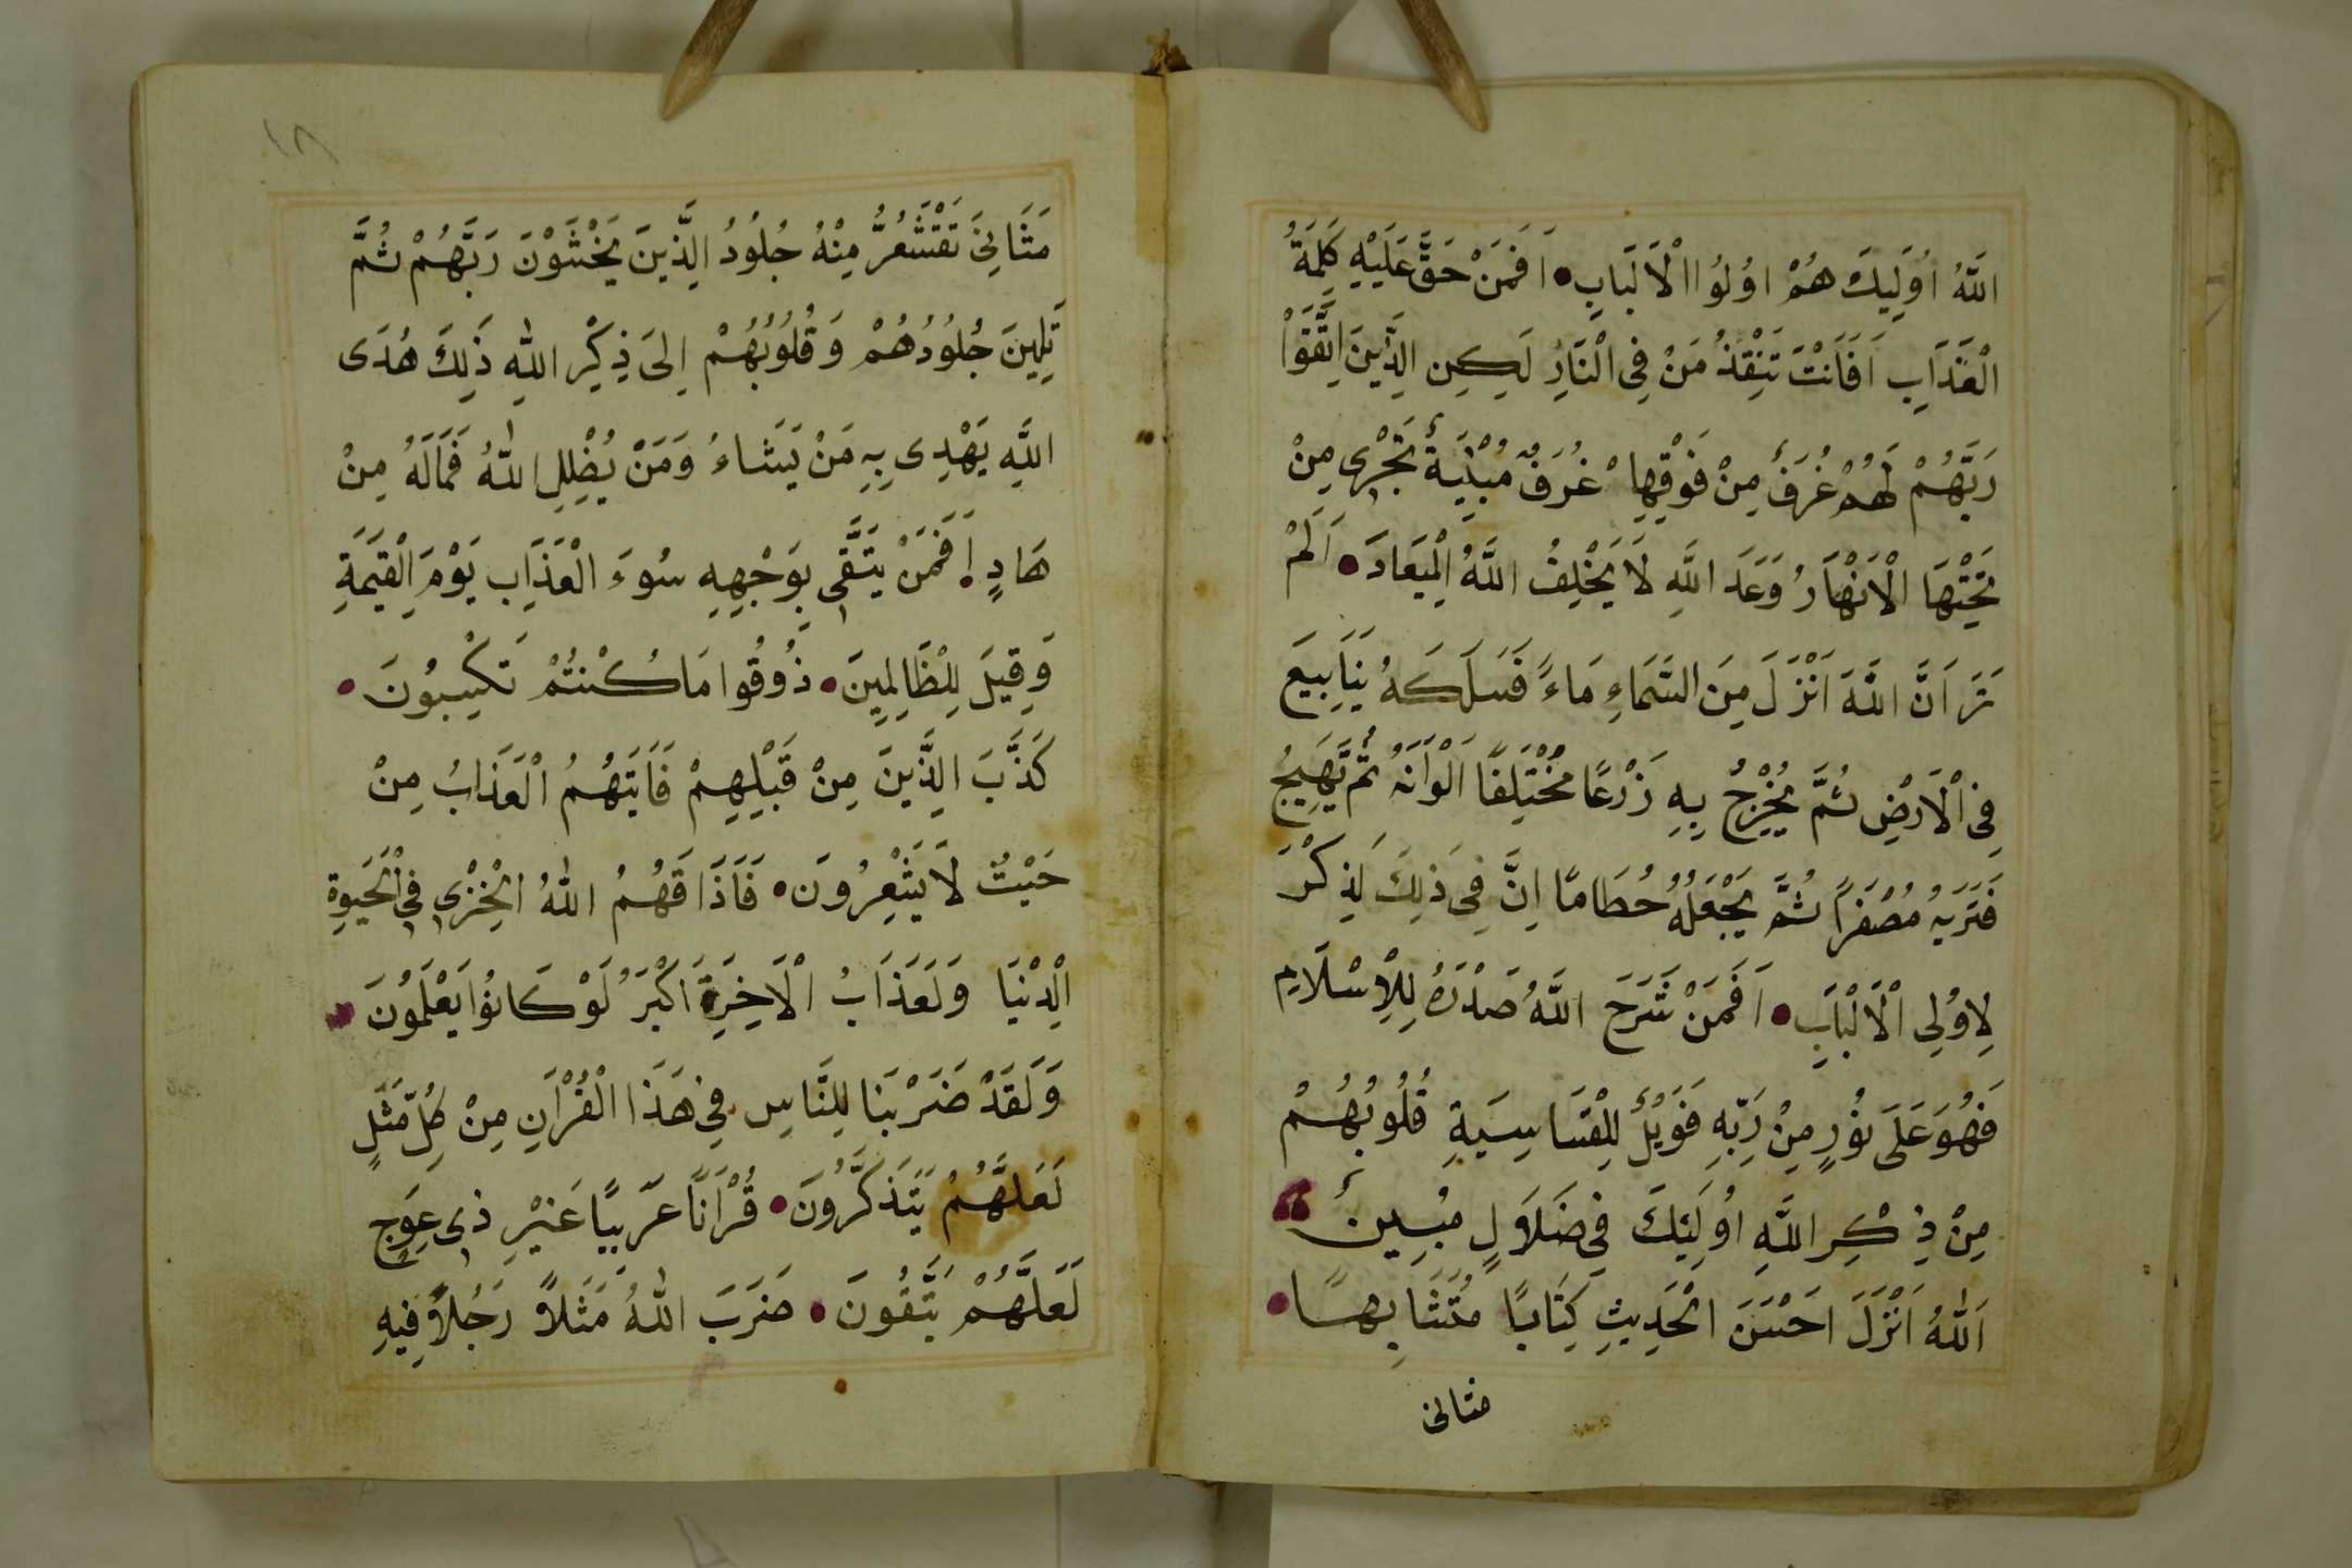 اللَّهُ اُولَئِكَ هُمْ اوُلُوا الْاَلْبَابِ • اَفَمَنْ حَقَّ عَلَيْهِ كَلِمَةُ
الْعَذَابِ اَفَاَنْتَ تُنْقِذُ مَنْ فِى الْنَارِ لَكِنِ الَّذِينَ اتَّقَوْا
رَبَّهُمْ لَهُمْ غُرَفٌ مِنْ فَوْقِهَا غُرَفٌ مُبْنِيَةٌ تَجْرِى مِنْ
تَحْتِهَا الْاَنْهَارُ وَعَدَ اللَّهِ لَا يُخْلِفُ اللَّهُ الْمِيعَادَ • اَلَمْ
تَرَ اَنَّ اللَّهَ اَنْزَلَ مِنَ السَّمَاءِ مَاءً فَسَلَكَهُ يَنَابِيعَ
فِى الْاَرْضِ ثُمَّ يُخْرِجُ بِهِ زَرْعًا مُخْتَلِفًا اَلْوَانَهُ ثُمَّ يَهِيجُ
فَتَرَيهُ مُصْفَرًا ثُمَّ يَجْعَلُهُ حُطَامًا اِنَّ فِى ذَلِكَ لَذِكْرَ
لِاوُلِى الْاَلْبَابِ • اَفَمَنْ شَرَحَ اللَّهُ صَدْرَهُ لِلْاِسْلَامِ
فَهُوَ عَلَى نُورٍ مِنْ رَبِّهِ فَوَيْلٌ لِلْقَاسِيَةِ قُلُوبُهُمْ
مِنْ ذِكْرِ اللَّهِ اوُلَئِكَ فِى ضَلَالٍ مُبِينٌ
اَللّٰهُ اَنْزَلَ اَحْسَنَ الْحَدِيثِ كِتَابًا مُتَشَابِهًا •
مثانى
١٨
مَثَانِىَ تَقْشَعِرُّ مِنْهُ جُلُودُ الَّذِينَ يَخْشَوْنَ رَبَّهُمْ ثُمَّ
تَلِينَ جُلُودُهُمْ وَقُلُوبُهُمْ اِلَى ذِكْرِ اللّٰهِ ذَلِكَ هُدَى
اللَّهِ يَهْدِى بِهِ مَنْ يَشَاءُ وَمَنْ يُضْلِلِ اللّٰهُ فَمَالَهُ مِنْ
هَادٍ • اَفَمَنْ يَتَّقِى بِوَجْهِهِ سُوءَ الْعَذَابِ يَوْمَ الْقِيَمَةِ
وَقِيلَ لِلْظَالِمِينَ • ذُوقُوا مَا كُنْتُمْ تَكْسِبُونَ •
كَذَّبَ الَّذِينَ مِنْ قَبْلِهِمْ فَاَتَيهُمُ الْعَذَابُ مِنْ
حَيْثُ لَا يَشْعِرُونَ • فَاَذَاقَهُمُ اللّٰهُ الْخِزْى فِى الْحَيَوةِ
الْدِنْيَا وَلَعَذَابُ الْاَخِرَةِ اَكْبَرُ لَوْ كَانُوا يَعْلَمُونَ •
وَلَقَدْ ضَرَبْنَا لِلنَّاسِ فِى هَذَا الْقُرْاَنِ مِنْ كُلِّ مَثَلٍ
لَعَلَّهُمْ يَتَذَكَّرُونَ • قُرْاَنًا عَرَبِيًا غَيْرِ ذِى عِوَجٍ
لَعَلَّهُمْ يَتَّقُونَ • ضَرَبَ اللّٰهُ مَثَلاً رَجُلاً فِيهِ